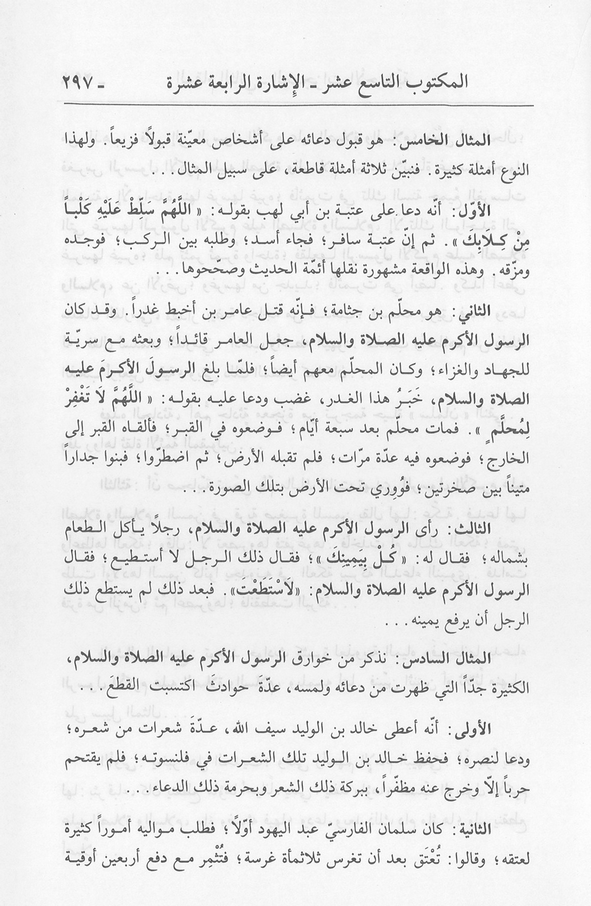 المكتوب التاسع عشر ـ الإشارة الرابعة عشرة ـ ٢٩٧
المثال الخامس: هو قبول دعائه على أشخاص معيّنة قبولاً فزيعاً. ولهذا
النوع أمثلة كثيرة. فنبيّن ثلاثة أمثلة قاطعة، على سبيل المثال...
الأوّل: أنّه دعا على عتبة بن أبي لهب بقوله: « اللَّهُمَّ سَلِّطْ عَلَيْهِ كَلْباً
مِنْ كِلَابِكَ ». ثم إنّ عتبة سافر؛ فجاء أسد؛ وطلبه بين الركب؛ فوجده
ومزّقه. وهذه الواقعة مشهورة نقلها أئمّة الحديث وصحّحوها...
الثاني: هو محلّم بن جثامة؛ فإنّه قتل عامر بن أخبط غدراً. وقد كان
الرسول الأكرم عليه الصلاة والسلام، جعل العامر قائداً؛ وبعثه مع سريّة
للجهاد والغزاء؛ وكان المحلّم معهم أيضاً؛ فلمّا بلغ الرسولَ الأكرمَ عليه
الصلاة والسلام، خَبَرُ هذا الغدر، غضب ودعا عليه بقوله: « اللَّهُمَّ لَا تَغْفِرْ
لِمُحلَّمٍ ». فمات محلّم بعد سبعة أيّام؛ فوضعوه في القبر؛ فألقاه القبر إلى
الخارج؛ فوضعوه فيه عدّة مرّات؛ فلم تقبله الأرض؛ ثم اضطرّوا؛ فبنوا جداراً
متيناً بين صخرتين؛ فوُورِي تحت الأرض بتلك الصورة...
الثالث: رأى الرسول الأكرم عليه الصلاة والسلام، رجلاً يأكل الطعام
بشماله؛ فقال له: « كُلْ بِيَمِينِكَ »؛ فقال ذلك الرجل لا أستطيع؛ فقال
الرسول الأكرم عليه الصلاة والسلام: «لَاسْتَطَعْتَ». فبعد ذلك لم يستطع ذلك
الرجل أن يرفع يمينه...
المثال السادس: نذكر من خوارق الرسول الأكرم عليه الصلاة والسلام،
الكثيرة جدّاً التي ظهرت من دعائه ولمسه، عدّةَ حوادثَ اكتسبت القطعَ...
الأولى: أنّه أعطى خالد بن الوليد سيف الله، عدّةَ شعرات من شعره؛
ودعا لنصره؛ فحفظ خالد بن الوليد تلك الشعرات في قلنسوته؛ فلم يقتحم
حرباً إلّا وخرج عنه مظفّراً، ببركة ذلك الشعر وبحرمة ذلك الدعاء...
الثانية: كان سلمان الفارسيّ عبد اليهود أوّلاً؛ فطلب مواليه أموراً كثيرة
لعتقه؛ وقالوا: تُعْتَق بعد أن تغرس ثلاثمأة غرسة؛ فتُثْمِر مع دفع أربعين أوقية